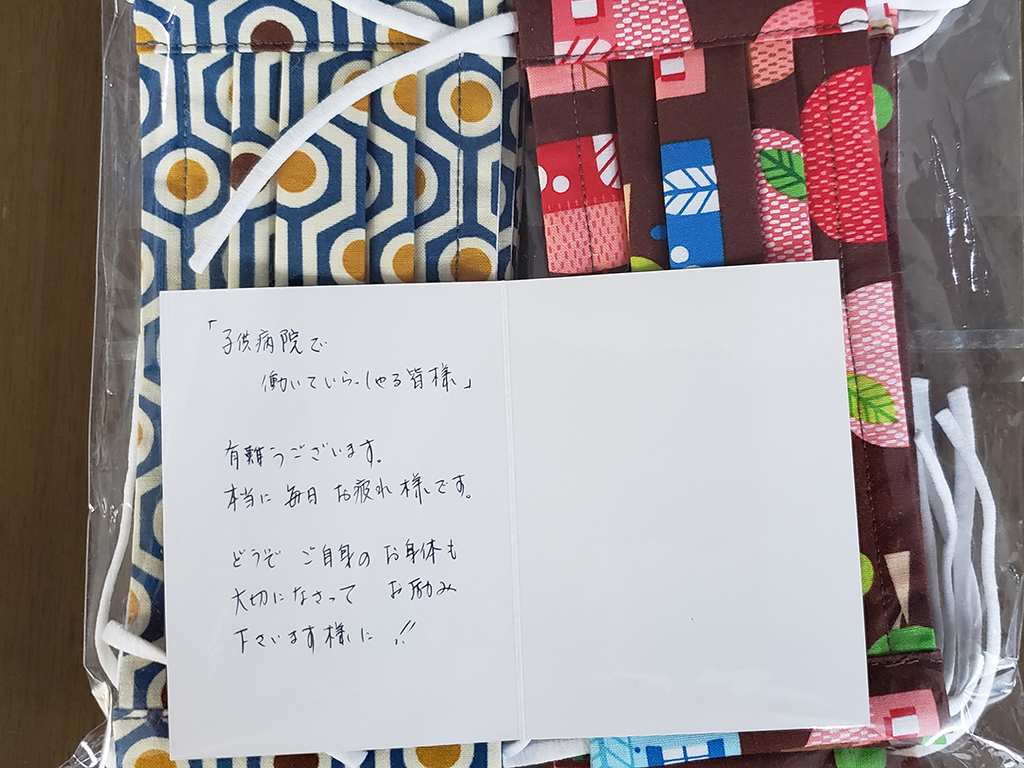 「子供病院で
働いていらっしゃる皆様」
有難うございます。
本当に 毎日 お疲れ様です。
どうぞ ご自身の お身体も
大切になさって お励み
下さいます様に!!